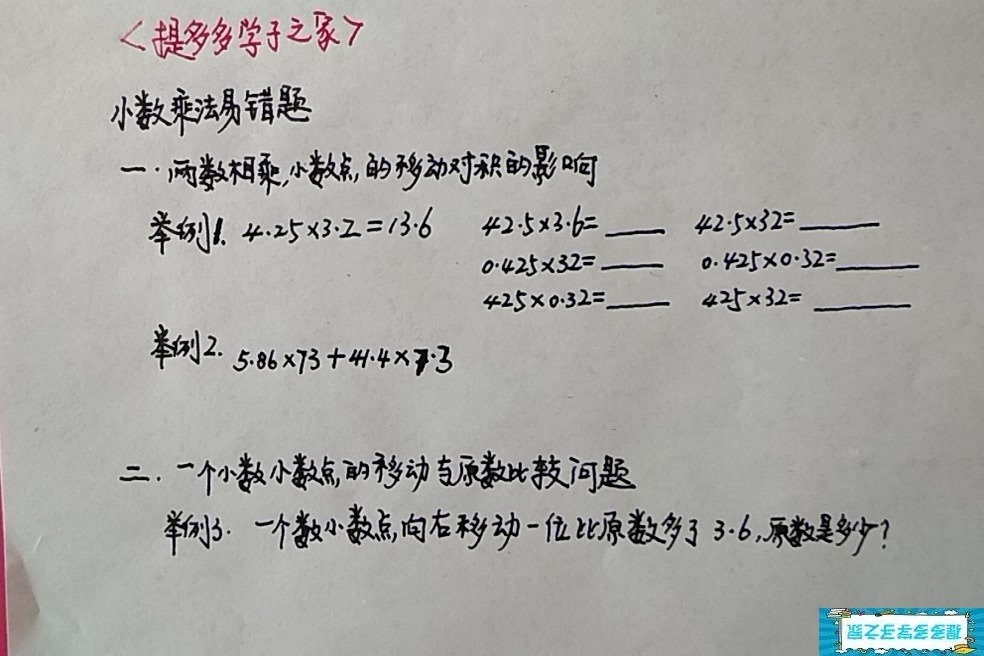 <提多多学子之家>
小数乘法易错题
一.两数相乘,小数点,的移动对积的影响
举例1. 4.25×3.2=13.6 42.5×3.6=____ 42.5×32=____
0.425×32=____ 0.425×0.32=____
425×0.32=____ 425×32=____
举例2. 5.86×73+41.4×7.3
二.一个小数小数点,的移动与原数比较问题
举例3.一个数小数点,向右移动一位比原数多了3.6,原数是多少?
提多多学子之家